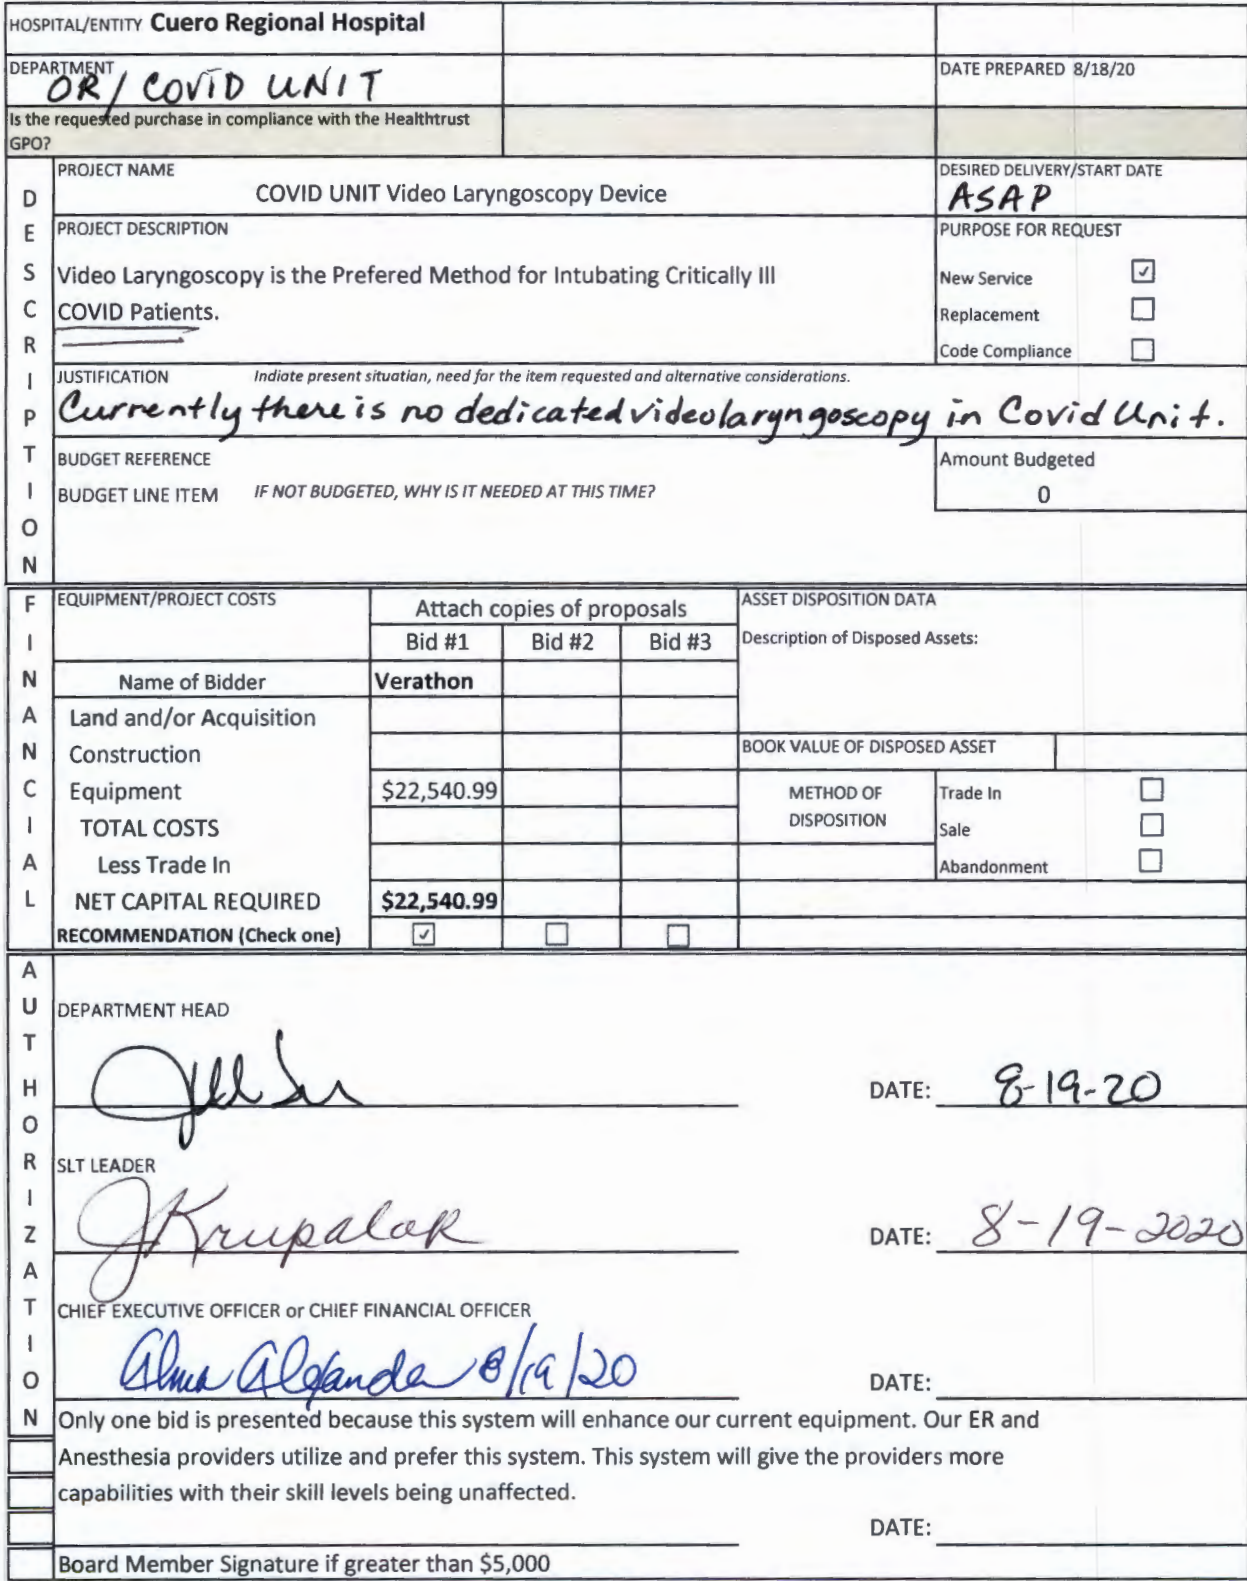 HOSPITAL/ENTITY Cuero Regional Hospital
DEPARTMENT OR/ COVID UNIT
DATE PREPARED 8/18/20
Is the requested purchase in compliance with the Healthtrust
GPO?
DESCRIPTION
PROJECT NAME
COVID UNIT Video Laryngoscopy Device
DESIRED DELIVERY/START DATE
ASAP
PROJECT DESCRIPTION
Video Laryngoscopy is the Prefered Method for Intubating Critically Ill
COVID Patients.
PURPOSE FOR REQUEST
New Service ✓
Replacement
Code Compliance
JUSTIFICATION Indiate present situation, need for the item requested and alternative considerations.
Currently there is no dedicated videolaryngoscopy in Covid Unit.
BUDGET REFERENCE
BUDGET LINE ITEM IF NOT BUDGETED, WHY IS IT NEEDED AT THIS TIME?
Amount Budgeted
0
FINANCIAL
EQUIPMENT/PROJECT COSTS
Attach copies of proposals
Bid #1 Bid #2 Bid #3
Name of Bidder Verathon
Land and/or Acquisition
Construction
Equipment $22,540.99
TOTAL COSTS
Less Trade In
NET CAPITAL REQUIRED $22,540.99
RECOMMENDATION (Check one) ✓
ASSET DISPOSITION DATA
Description of Disposed Assets:
BOOK VALUE OF DISPOSED ASSET
METHOD OF
DISPOSITION
Trade In
Sale
Abandonment
AUTHORIZATION
DEPARTMENT HEAD
DATE: 8-19-20
SLT LEADER
JKrupalak
DATE: 8-19-2020
CHIEF EXECUTIVE OFFICER or CHIEF FINANCIAL OFFICER
Alma Alexander 8/19/20
DATE:
Only one bid is presented because this system will enhance our current equipment. Our ER and
Anesthesia providers utilize and prefer this system. This system will give the providers more
capabilities with their skill levels being unaffected.
DATE:
Board Member Signature if greater than $5,000